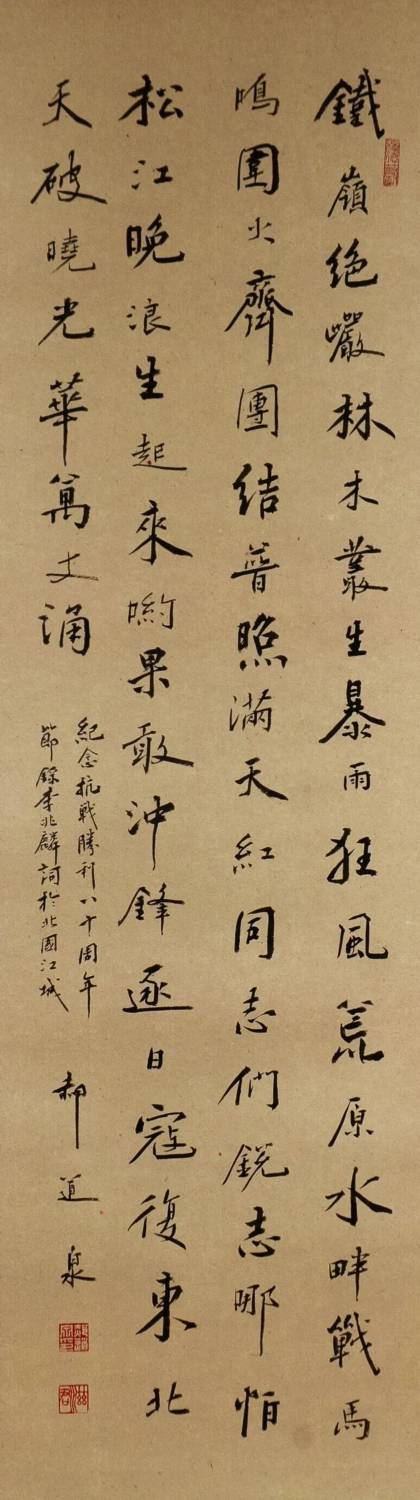 鐵嶺绝嚴林木叢生暴雨狂風荒原水畔戰馬
鳴圍火齊團結普照滿天紅同志們鋭志哪怕
松江晚浪生起來喲果敢沖鋒逐日寇復東北
天破曉光華萬丈涌
紀念抗戰勝利八十周年
節錄李兆麟詞於北國江城
郝道泉